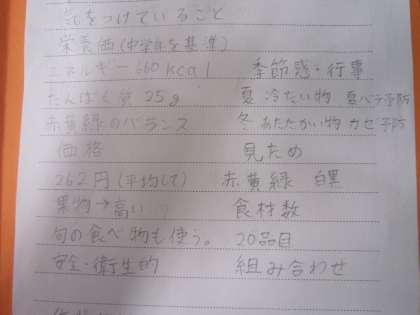 気をつけていること
栄養価(中学年を基準)
エネルギー 660 kcal 季節感・行事
たんぱく質 25g 夏 冷たい物 夏バテ予防
赤黄緑のバランス 冬 あたたかい物 カゼ予防
価格 見ため
262円(平均して) 赤黄緑 白黒
果物→高い 食材数
旬の食べ物も使う。 20品目
安全・衛生的 組み合わせ